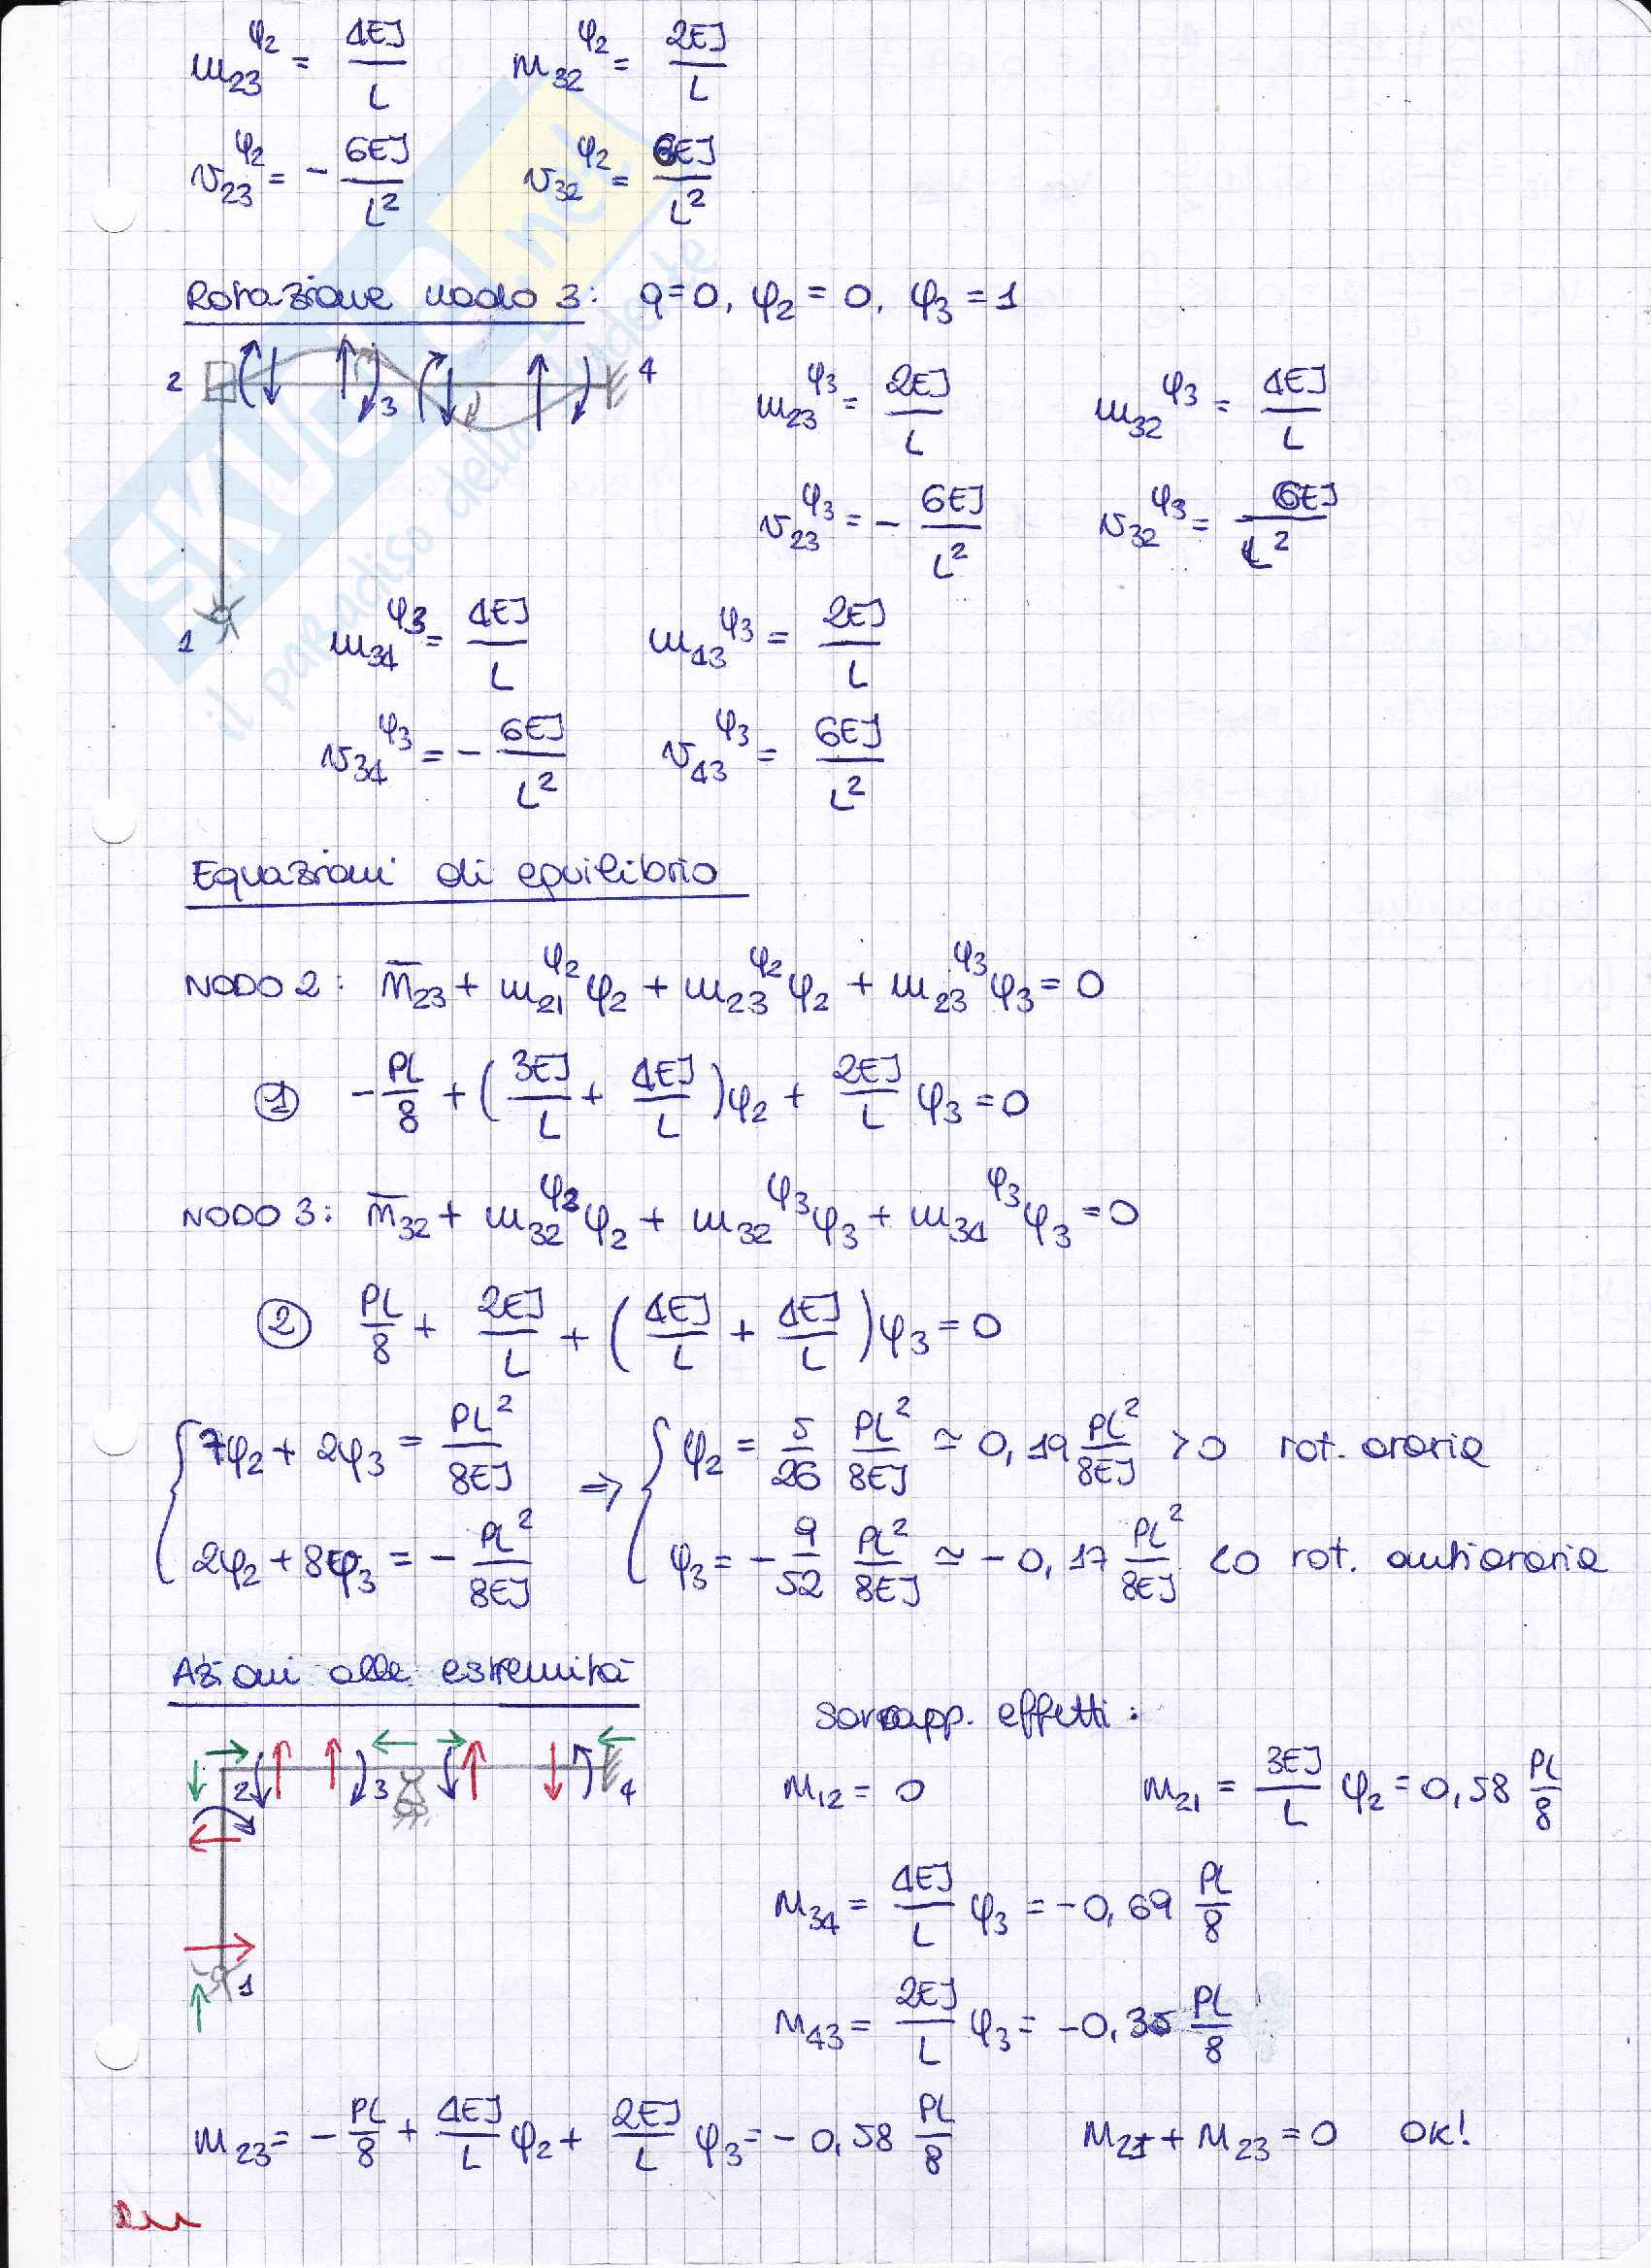 m₂₃^φ₂ = 4EJ/L   m₃₂^φ₂ = 2EJ/L
v₂₃^φ₂ = - 6EJ/L²   v₃₂^φ₂ = 6EJ/L²
Rotazione nodo 3: q=0, φ₂=0, φ₃=1
2 3 4
m₂₃^φ₃ = 2EJ/L   m₃₂^φ₃ = 4EJ/L
v₂₃^φ₃ = - 6EJ/L²   v₃₂^φ₃ = 6EJ/L²
1   m₃₄^φ₃ = 4EJ/L   m₄₃^φ₃ = 2EJ/L
v₃₄^φ₃ = - 6EJ/L²   v₄₃^φ₃ = 6EJ/L²
Equazioni di equilibrio
NODO 2: m̄₂₃ + m₂₁^φ₂ φ₂ + m₂₃^φ₂ φ₂ + m₂₃^φ₃ φ₃ = 0
① - PL/8 + (3EJ/L + 4EJ/L) φ₂ + 2EJ/L φ₃ = 0
NODO 3: m̄₃₂ + m₃₂^φ₂ φ₂ + m₃₂^φ₃ φ₃ + m₃₄^φ₃ φ₃ = 0
② PL/8 + 2EJ/L + (4EJ/L + 4EJ/L) φ₃ = 0
{ 7φ₂ + 2φ₃ = PL²/8EJ ⇒ { φ₂ = 5/26 PL²/8EJ ≃ 0,19 PL²/8EJ > 0 rot. oraria
2φ₂ + 8φ₃ = - PL²/8EJ   φ₃ = - 9/52 PL²/8EJ ≃ -0,17 PL²/8EJ < 0 rot. antioraria
Azioni alle estremità
Sovrapp. effetti:
2 3 4
M₁₂ = 0   M₂₁ = 3EJ/L φ₂ = 0,58 PL/8
M₃₄ = 4EJ/L φ₃ = -0,69 PL/8
1
M₄₃ = 2EJ/L φ₃ = -0,35 PL/8
M₂₃ = - PL/8 + 4EJ/L φ₂ + 2EJ/L φ₃ = -0,58 PL/8   M₂₁ + M₂₃ = 0 OK!
SKUOLA.net
il paradiso dello studente